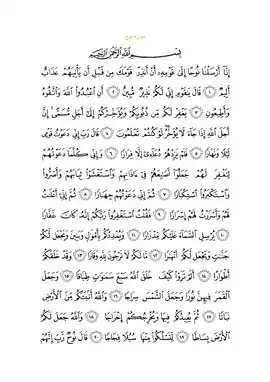 سورة نوح
بِسْمِ ٱللَّهِ ٱلرَّحْمَٰنِ ٱلرَّحِيمِ
إِنَّآ أَرْسَلْنَا نُوحًا إِلَىٰ قَوْمِهِۦٓ أَنْ أَنذِرْ قَوْمَكَ مِن قَبْلِ أَن يَأْتِيَهُمْ عَذَابٌ
أَلِيمٌ ١ قَالَ يَٰقَوْمِ إِنِّى لَكُمْ نَذِيرٌ مُّبِينٌ ٢ أَنِ ٱعْبُدُوا۟ ٱللَّهَ وَٱتَّقُوهُ
وَأَطِيعُونِ ٣ يَغْفِرْ لَكُم مِّن ذُنُوبِكُمْ وَيُؤَخِّرْكُمْ إِلَىٰٓ أَجَلٍ مُّسَمًّى ۚ إِنَّ
أَجَلَ ٱللَّهِ إِذَا جَآءَ لَا يُؤَخَّرُ ۖ لَوْ كُنتُمْ تَعْلَمُونَ ٤ قَالَ رَبِّ إِنِّى دَعَوْتُ قَوْمِى
لَيْلًا وَنَهَارًا ٥ فَلَمْ يَزِدْهُمْ دُعَآءِىٓ إِلَّا فِرَارًا ٦ وَإِنِّى كُلَّمَا دَعَوْتُهُمْ
لِتَغْفِرَ لَهُمْ جَعَلُوٓا۟ أَصَٰبِعَهُمْ فِىٓ ءَاذَانِهِمْ وَٱسْتَغْشَوْا۟ ثِيَابَهُمْ وَأَصَرُّوا۟
وَٱسْتَكْبَرُوا۟ ٱسْتِكْبَارًا ٧ ثُمَّ إِنِّى دَعَوْتُهُمْ جِهَارًا ٨ ثُمَّ إِنِّىٓ أَعْلَنتُ
لَهُمْ وَأَسْرَرْتُ لَهُمْ إِسْرَارًا ٩ فَقُلْتُ ٱسْتَغْفِرُوا۟ رَبَّكُمْ إِنَّهُۥ كَانَ غَفَّارًا
١٠ يُرْسِلِ ٱلسَّمَآءَ عَلَيْكُم مِّدْرَارًا ١١ وَيُمْدِدْكُم بِأَمْوَٰلٍ وَبَنِينَ وَيَجْعَل لَّكُمْ
جَنَّٰتٍ وَيَجْعَل لَّكُمْ أَنْهَٰرًا ١٢ مَّا لَكُمْ لَا تَرْجُونَ لِلَّهِ وَقَارًا ١٣ وَقَدْ خَلَقَكُمْ
أَطْوَارًا ١٤ أَلَمْ تَرَوْا۟ كَيْفَ خَلَقَ ٱللَّهُ سَبْعَ سَمَٰوَٰتٍ طِبَاقًا ١٥ وَجَعَلَ
ٱلْقَمَرَ فِيهِنَّ نُورًا وَجَعَلَ ٱلشَّمْسَ سِرَاجًا ١٦ وَٱللَّهُ أَنۢبَتَكُم مِّنَ ٱلْأَرْضِ
نَبَاتًا ١٧ ثُمَّ يُعِيدُكُمْ فِيهَا وَيُخْرِجُكُمْ إِخْرَاجًا ١٨ وَٱللَّهُ جَعَلَ لَكُمُ
ٱلْأَرْضَ بِسَاطًا ١٩ لِّتَسْلُكُوا۟ مِنْهَا سُبُلًا فِجَاجًا ٢٠ قَالَ نُوحٌ رَّبِّ إِنَّهُمْ